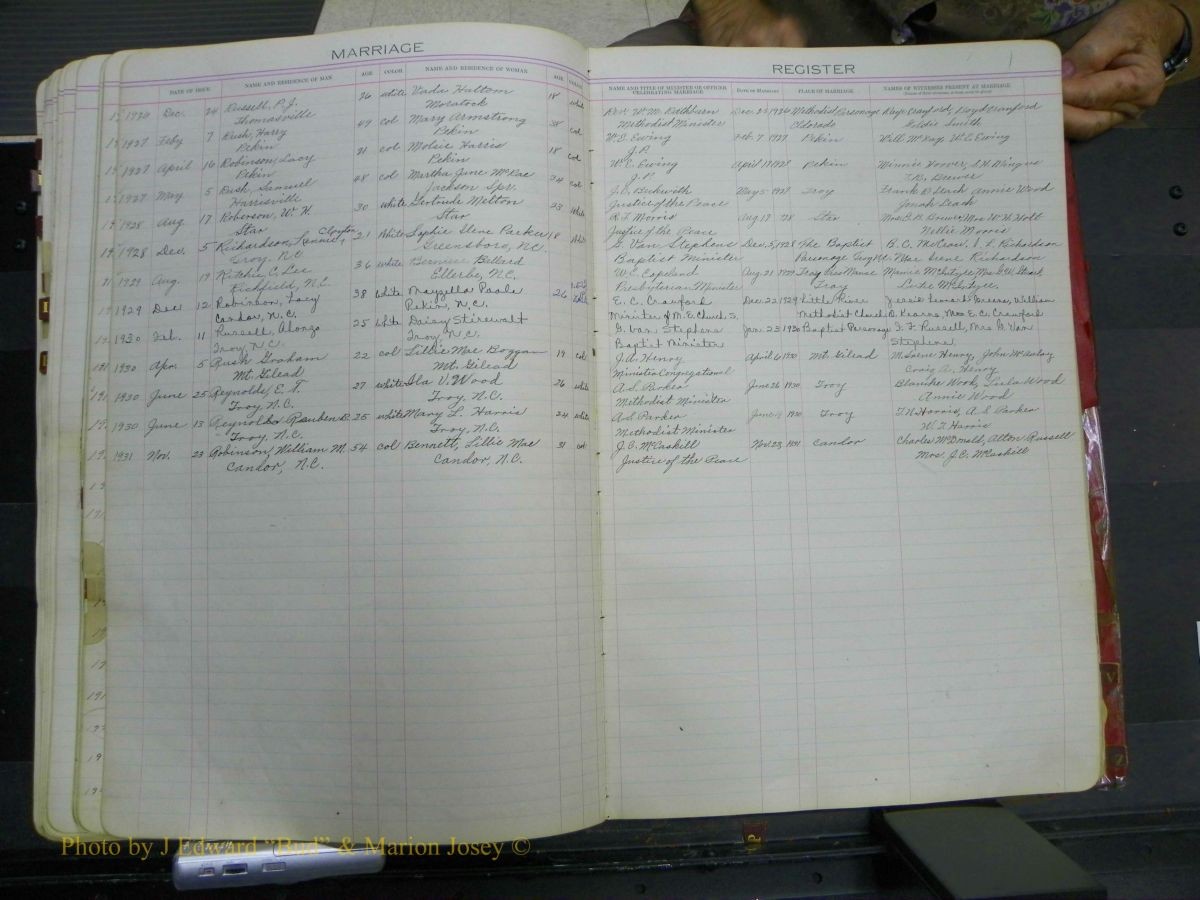 MARRIAGE
DATE OF ISSUE NAME AND RESIDENCE OF MAN AGE COLOR NAME AND RESIDENCE OF WOMAN AGE COLOR
1926 Dec. 24 Russell, P. J. 26 white Vada Haltom 18 white
Thomasville Moratock
1927 Feby 7 Rush, Harry 49 col Mary Armstrong 38 col
Pekin Pekin
1927 April 16 Robinson, Lacy 21 col Molsie Harris 18 col
Pekin Pekin
1927 May 5 Rush, Samuel 48 col Martha June McRae 34 col
Harrisville Jackson Spr.
1928 Aug. 17 Roberson, W. H. 30 white Gertrude Melton 23 white
Star Star
1928 Dec. 5 Richardson, Clayton 21 White Sophie Ilene Parker 18 White
Troy, N.C. Greensboro, N.C.
1929 Aug. 19 Ritchie C. Lee 36 white Bernice Ballard
Richfield, N.C. Ellerbe, N.C.
1929 Dec 12 Robinson, Lacy 38 white Mayzella Poole 26
Candor, N.C. Pekin, N.C.
1930 Feb. 11 Russell, Alonzo 25 white Daisy Stirewalt
Troy, N.C. Troy, N.C.
1930 Apr. 5 Rush Graham 22 col Lillie Mae Boggan 19 col
Mt. Gilead Mt. Gilead
1930 June 25 Reynolds, E. T. 27 white Ila V. Wood 26 white
Troy, N.C. Troy, N.C.
1930 June 13 Reynolds Reuben D. 25 white Mary L. Harris 24 white
Troy, N.C. Troy, N.C.
1931 Nov. 23 Robinson, William M. 54 col Bennett, Lillie Mae 31 col
Candor, N.C. Candor, N.C.
REGISTER
NAME AND TITLE OF MINISTER OR OFFICER CELEBRATING MARRIAGE DATE OF MARRIAGE PLACE OF MARRIAGE NAMES OF WITNESSES PRESENT AT MARRIAGE
Rev. W. M. Rathburn Dec. 24 1926 Methodist Parsonage Kaye Cranford, Lloyd Cranford
Methodist Minister Eldorado Goldie Smith
W. C. Ewing Feb. 7 1927 Pekin Will McKay, W. C. Ewing
J.P.
W. C. Ewing April 17 1927 Pekin Minnie Hoover,
J.P. Brewer
J. C. Beckwith May 5 1927 Troy Frank D. Leach Annie Wood
Justice of the Peace Jonah Leach
R. F. Morris Aug. 17 28 Star Mrs. G. B. Brewer Mrs W. H. Holt
Justice of the Peace Nettie Morris
G. Van Stephens Dec. 5, 1928 The Baptist B. C. McCrow, I. F. Richardson
Baptist Minister Parsonage Troy N.C. Mae Irene Richardson
W. C. Copeland Aug. 21 1929 Troy Mamie McIntyre
Presbyterian Minister McIntyre.
E. C. Crawford Dec. 22 1929 Little River Jessie Leonard Greene, William
Minister of M. E. Church, S. Methodist Church D. Kearns, Mrs E. C. Crawford
G. Van Stephens Jan. 23 1930 Baptist Parsonage T. F. Russell, Mrs G. Van
Baptist Minister Stephens
J. A. Henry April 6 1930 Mt. Gilead Henry, John McAulay
Minister Congregational Craig A. Henry
A. S. Parker June 26 1930 Troy Blanche Wood, Lula Wood
Methodist Minister Annie Wood
A. S. Parker June 14 1930 Troy T. N. Harris, A. S. Parker
Methodist Minister W. T. Harris
J. C. McCaskill Nov. 23, 1931 Candor Charles McDonald, Alton Russell
Justice of the Peace Mrs. J. C. McCaskill
Photo by J Edward "Bud" & Marion Josey ©